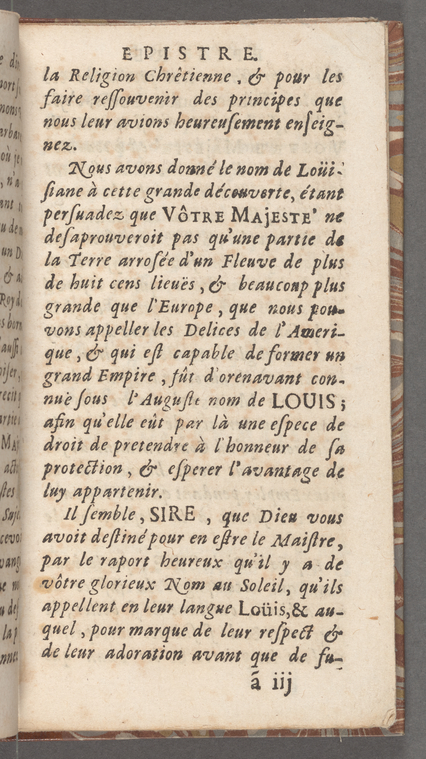 EPISTRE.
la Religion Chrêtienne, & pour les
faire reſſouvenir des principes que
nous leur avions heureuſement enſeig-
nez.
Nous avons donné le nom de Loüi-
ſiane à cette grande découverte, étant
perſuadez que VÔTRE MAJESTE' ne
deſaprouveroit pas qu'une partie de
la Terre arroſée d'un Fleuve de plus
de huit cens lieuës, & beaucoup plus
grande que l'Europe, que nous pou-
vons appeller les Delices de l'Ameri-
que, & qui eſt capable de former un
grand Empire, fût d'orenavant con-
nuë ſous l'Auguſte nom de LOUIS;
afin qu'elle eût par là une eſpece de
droit de pretendre à l'honneur de ſa
protection, & eſperer l'avantage de
luy appartenir.
Il ſemble, SIRE, que Dieu vous
avoit deſtiné pour en eſtre le Maiſtre,
par le raport heureux qu'il y a de
vôtre glorieux Nom au Soleil, qu'ils
appellent en leur langue Loüis, & au-
quel, pour marque de leur reſpect &
de leur adoration avant que de fu-
ã iij